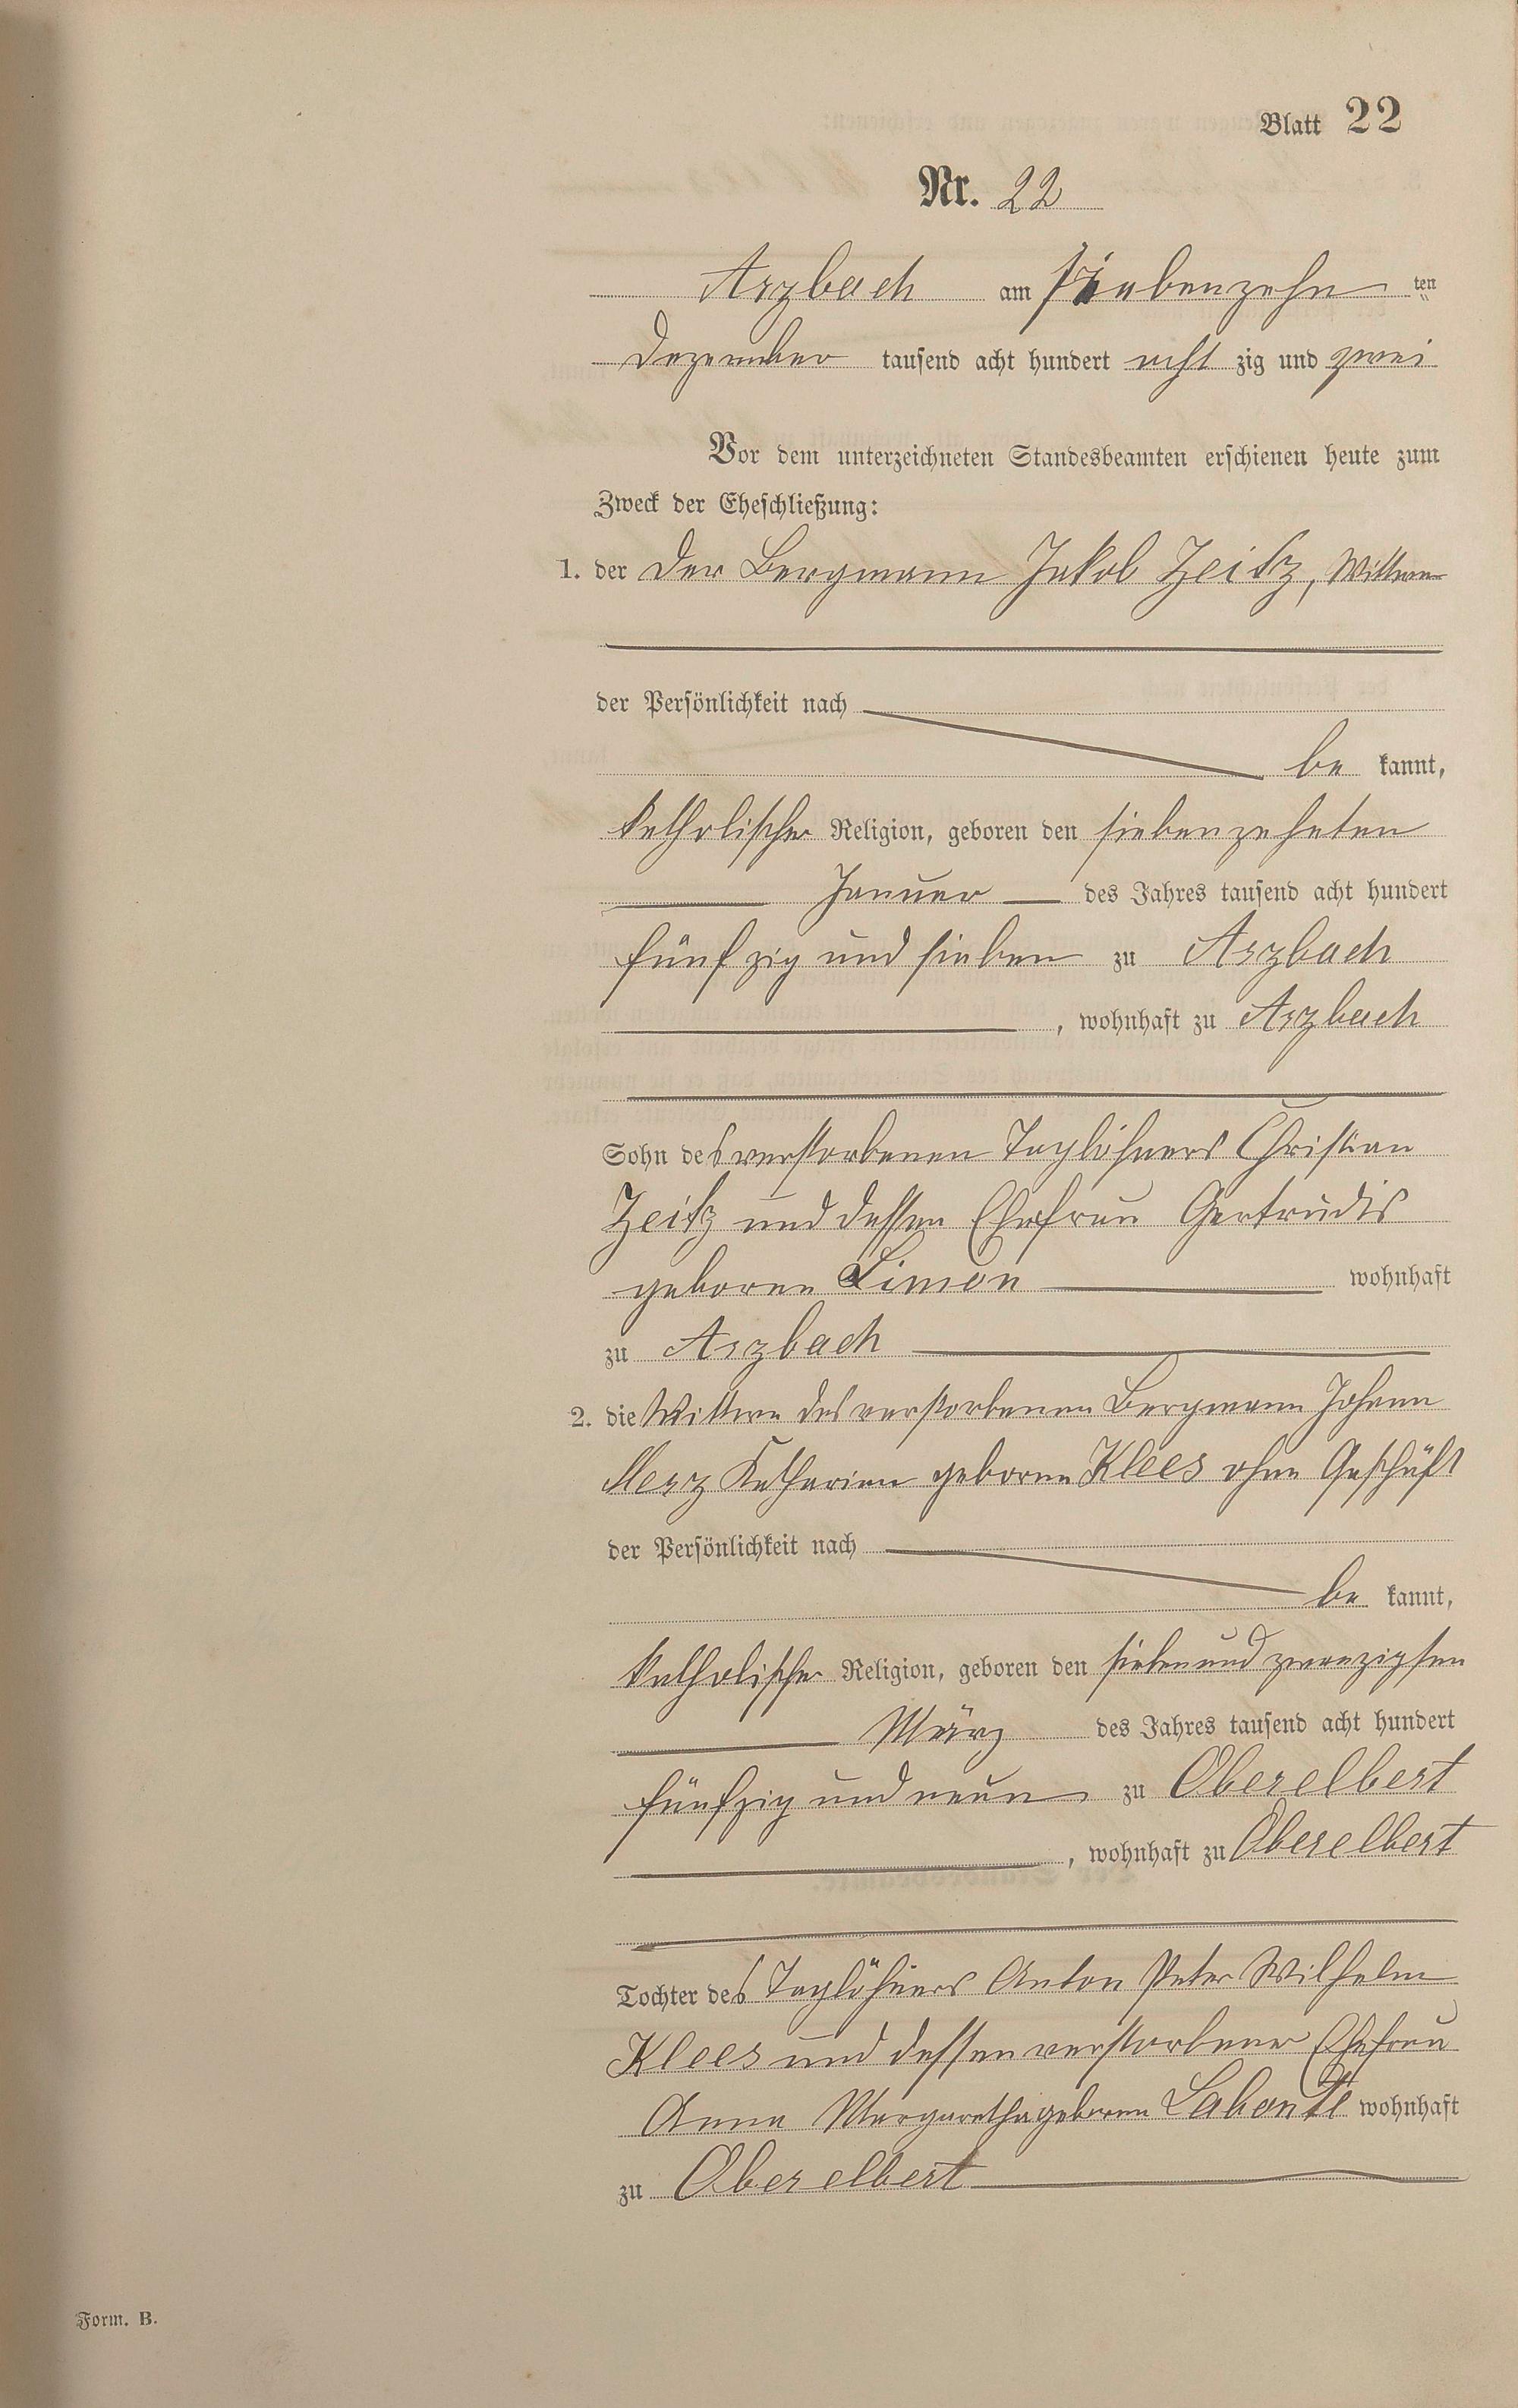 Blatt 22
Nr. 22
Arzbach am siebenzehn ten
Dezember tausend acht hundert acht zig und zwei
Vor dem unterzeichneten Standesbeamten erschienen heute zum
Zweck der Eheschließung:
1. der Der Bergmann Jakob Zeitz, Wittwer
der Persönlichkeit nach
be kannt,
katholischer Religion, geboren den siebenzehnten
Januar des Jahres tausend acht hundert
fünfzig und sieben zu Arzbach
, wohnhaft zu Arzbach
Sohn des verstorbenen Taglöhners Christian
Zeitz und dessen Ehefrau Gertrudis
geborene Simon wohnhaft
zu Arzbach
2. die Wittwe des verstorbenen Bergmann Johann
Merz Katharina geborene Klees ohne Geschäft
der Persönlichkeit nach
be kannt,
katholischer Religion, geboren den sieben und zwanzigsten
März des Jahres tausend acht hundert
fünfzig und neun zu Oberelbert
, wohnhaft zu Oberelbert
Tochter des Taglöhners Anton Peter Wilhelm
Klees und dessen verstorbener Ehefrau
Anna Margaretha geborene Labonte wohnhaft
zu Oberelbert
Form. B.